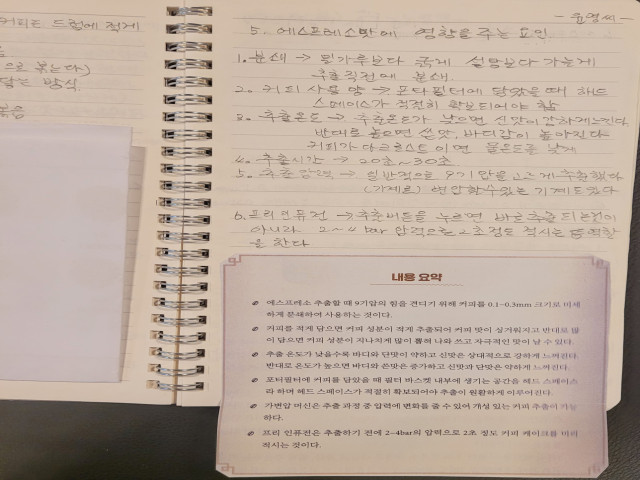 커피노 드립에 적게
으로 볶는다)
방식.
- 윤영씨 -
5. 에스프레소맛에 영향을 주는 요인
1. 분쇄 → 밀가루보다 굵게 설탕보다 가늘게
추출직전에 분쇄.
2. 커피 사용량 → 포타필터에 담았을때 헤드
스페이스가 적절히 확보되어야 함
3. 추출온도 → 추출온도가 낮으면 신맛이 강하게느낀다.
반대로 높으면 쓴맛, 바디감이 높아진다
커피가 다크로스트이면 물온도를 낮게
4. 추출시간 → 20초~30초
5. 추출압력 → 일반적으로 9기압을
변압할수있는 기계도있다
6. 프리인퓨전 → 추출버튼을 누르면 바로 추출되는것이
아니라 2~4 bar 압력으로 2초정도 적시는 동작
을 한다
내용 요약
에스프레소 추출할 때 9기압의 힘을 견디기 위해 커피를 0.1~0.3mm 크기로 미세
하게 분쇄하여 사용하는 것이다.
커피를 적게 담으면 커피 성분이 적게 추출되어 커피 맛이 싱거워지고 반대로 많
이 담으면 커피 성분이 지나치게 많이 뽑혀 나와 쓰고 자극적인 맛이 날 수 있다.
추출 온도가 낮을수록 바디와 단맛이 약하고 신맛은 상대적으로 강하게 느껴진다.
반대로 온도가 높으면 바디와 쓴맛은 증가하고 신맛과 단맛은 약하게 느껴진다.
포터필터에 커피를 담았을 때 필터 바스켓 내부에 생기는 공간을 헤드 스페이스
라 하며 헤드 스페이스가 적절히 확보되어야 추출이 원활하게 이루어진다.
가변압 머신은 추출 과정 중 압력에 변화를 줄 수 있어 개성 있는 커피 추출이 가능
하다.
프리 인퓨전은 추출하기 전에 2~4bar의 압력으로 2초 정도 커피 케이크를 미리
적시는 것이다.